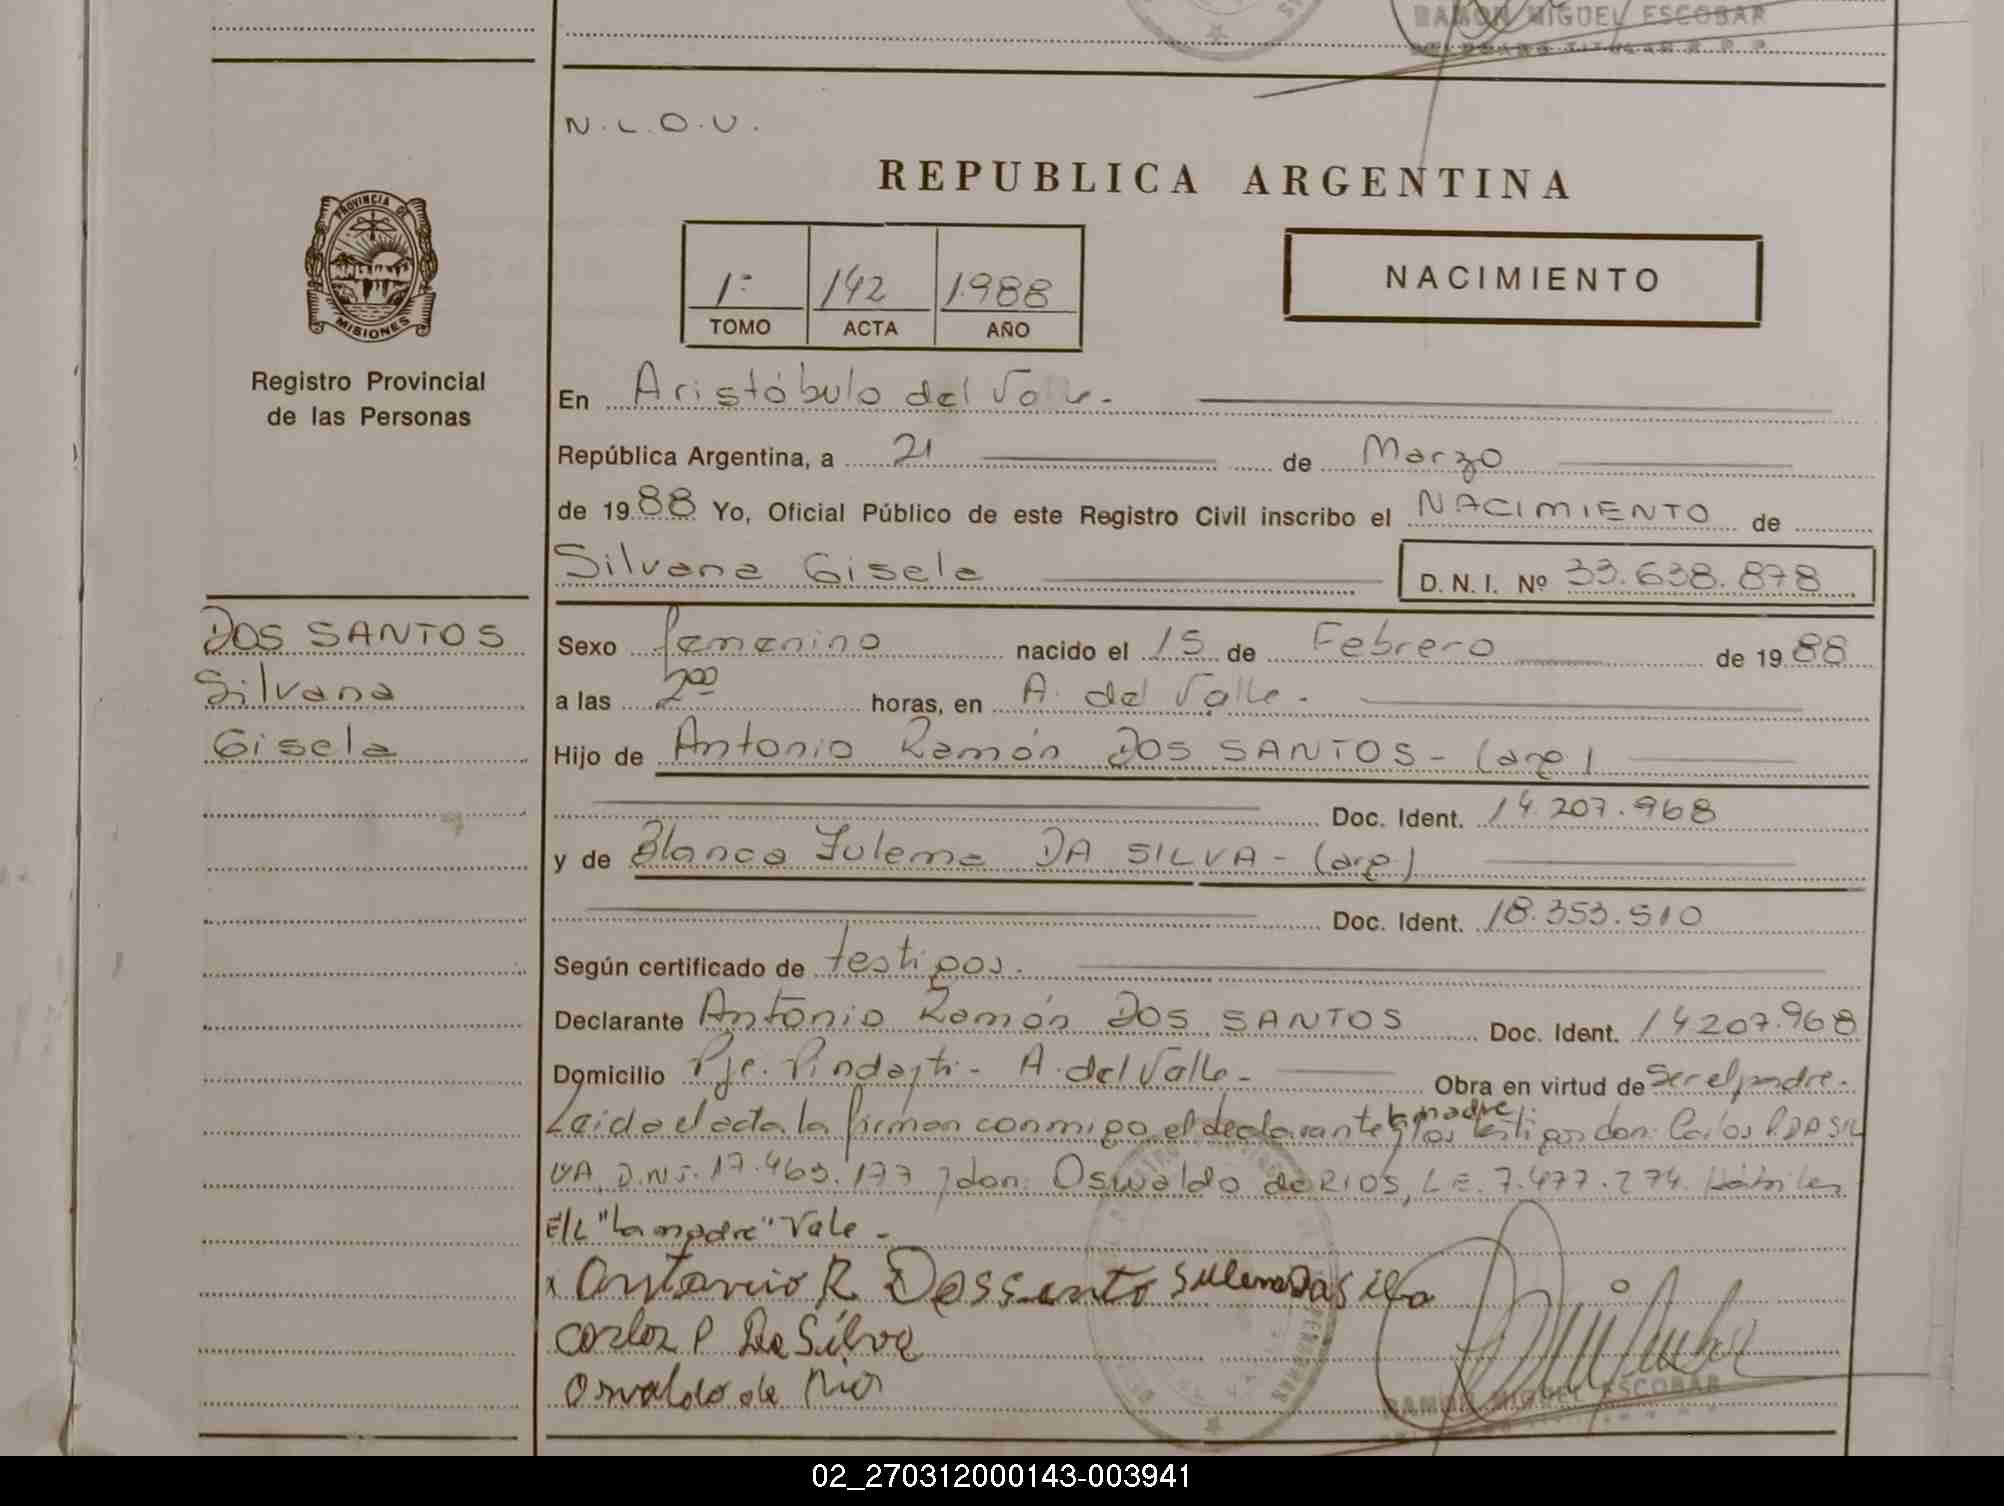 RAMON MIGUEL ESCOBAR
N.L.O.V.
REPUBLICA ARGENTINA
PROVINCIA DE
MISIONES
1º 142 1988
TOMO ACTA AÑO
NACIMIENTO
Registro Provincial
de las Personas
En Aristóbulo del Valle.
República Argentina, a 21 de Marzo
de 1988 Yo, Oficial Público de este Registro Civil inscribo el NACIMIENTO de
Silvana Gisela D.N.I. Nº 33.638.878
DOS SANTOS
Silvana
Gisela
Sexo femenino nacido el 15 de Febrero de 1988
a las 2 00 horas, en A. del Valle.
Hijo de Antonio Ramón DOS SANTOS - (arg)
Doc. Ident. 14.207.968
y de Blanca Zulema DA SILVA - (arg.)
Doc. Ident. 18.353.510
Según certificado de testigos.
Declarante Antonio Ramón DOS SANTOS Doc. Ident. 14207.968
Domicilio Pje. Pindayti - A. del Valle - Obra en virtud de ser el padre.
Leida el acta la firman conmigo, el declarante, la madre y los testigos don: Carlos P. DA SIL
VA, D.N.I. 17.463.177 y don: Oswaldo de RIOS, L.E. 7.477.274. Hábiles
E/L "la madre" Vale -
x Antonio R Dossanto Sulema Das ilva
Carlos P Da Silva
Osvaldo de Rios
RAMON MIGUEL ESCOBAR
02_270312000143-003941